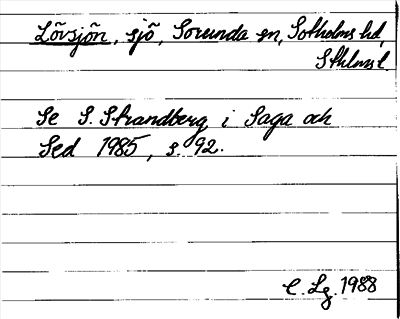 Lövsjön, sjö, Sorunda sn, Sotholms hd,
Sthlms l
Se S. Strandberg i Saga och
Sed 1985, s. 92.
C. Lg. 1988